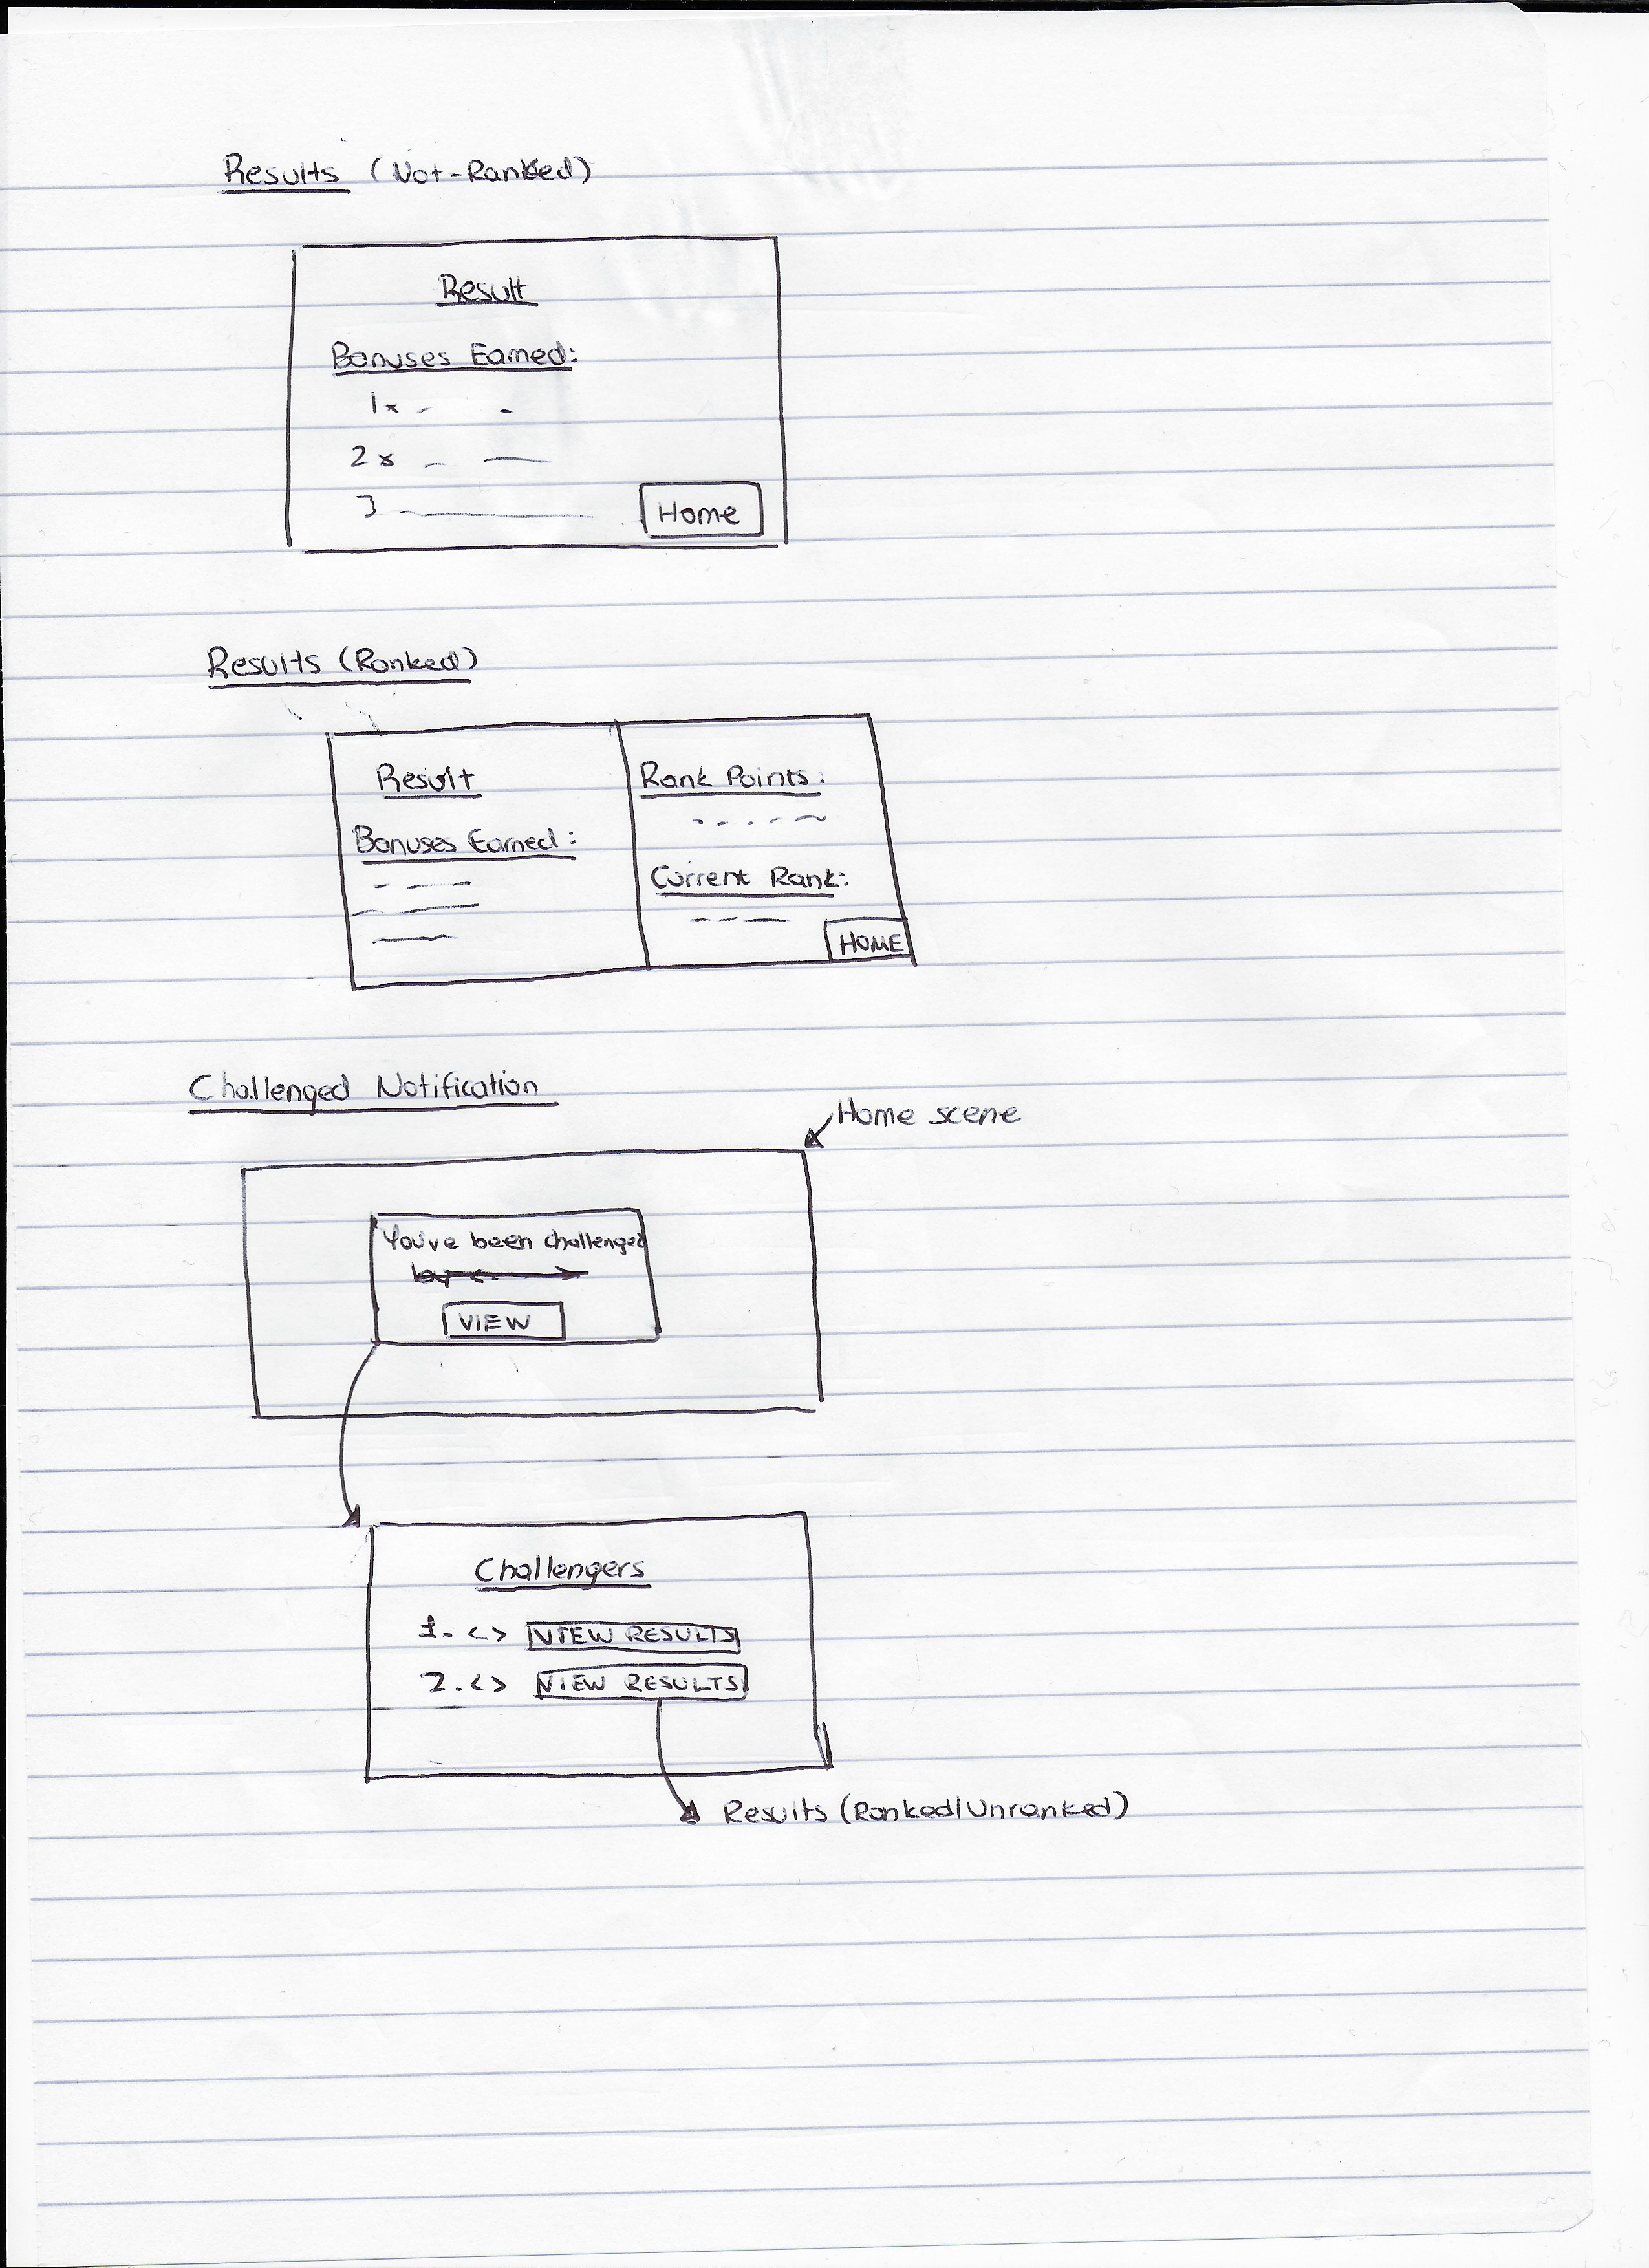 Results (Not-Ranked)
Result
Bonuses Earned:
1x
2x
3
Home
Results (Ranked)
Result
Bonuses Earned:
Rank Points:
Current Rank:
HOME
Challenged Notification
Home scene
You've been challenged
by < >
VIEW
Challengers
1. <> VIEW RESULTS
2. <> VIEW RESULTS
Results (Ranked/Unranked)